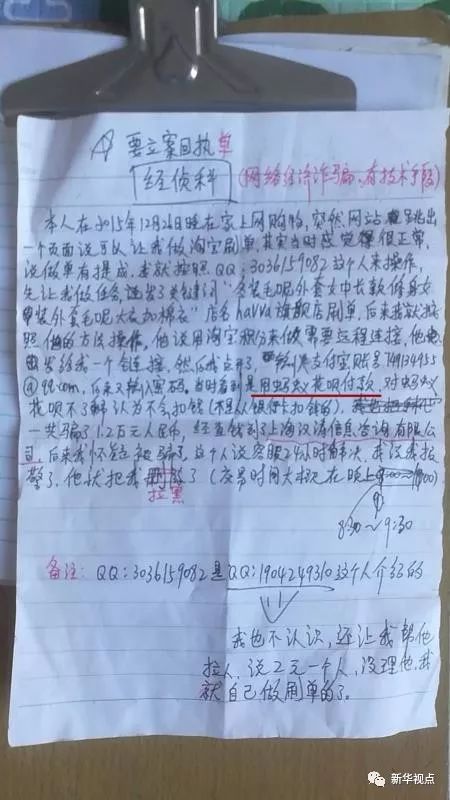 要立案回执单
经侦科
(网络经济诈骗、有技术手段)
本人在2015年12月26日晚在家上网购物,突然网站跳出
一个页面说可以让我做淘宝刷单,其实当时感觉得很正常,
说做单有提成,我就按照QQ:3036159082这个人来操作,
先让我做任务,关键词"冬装毛呢外套女中长款修身女
装外套毛呢大衣加棉衣"店名halva旗舰店刷单,后来我就按
照他的方法操作,他说用淘宝积分来做需要远程连接,他
发给我一个链接,然后我点开了,支付宝账号749134955
@qq.com,后来又输入密码,当时看到是用蚂蚁花呗付款,对蚂蚁
花呗不了解认为不会扣钱(不是从银行卡扣钱的),
一共骗了1.2万元人民币,经查钱到了上海汉涛信息咨询有限公
司,后来我怀疑被骗了,这个人说客服2小时解决,我说我报
警了,他就把我删除了(交易时间大概在晚上8:00~9:00)
拉黑
8:30~9:30
备注:QQ:3036159082是QQ:1904249310这个人介绍的
我也不认识,还让我帮他
拉人,说2元一个人,没理他,我
就自己做刷单的了。
新华视点